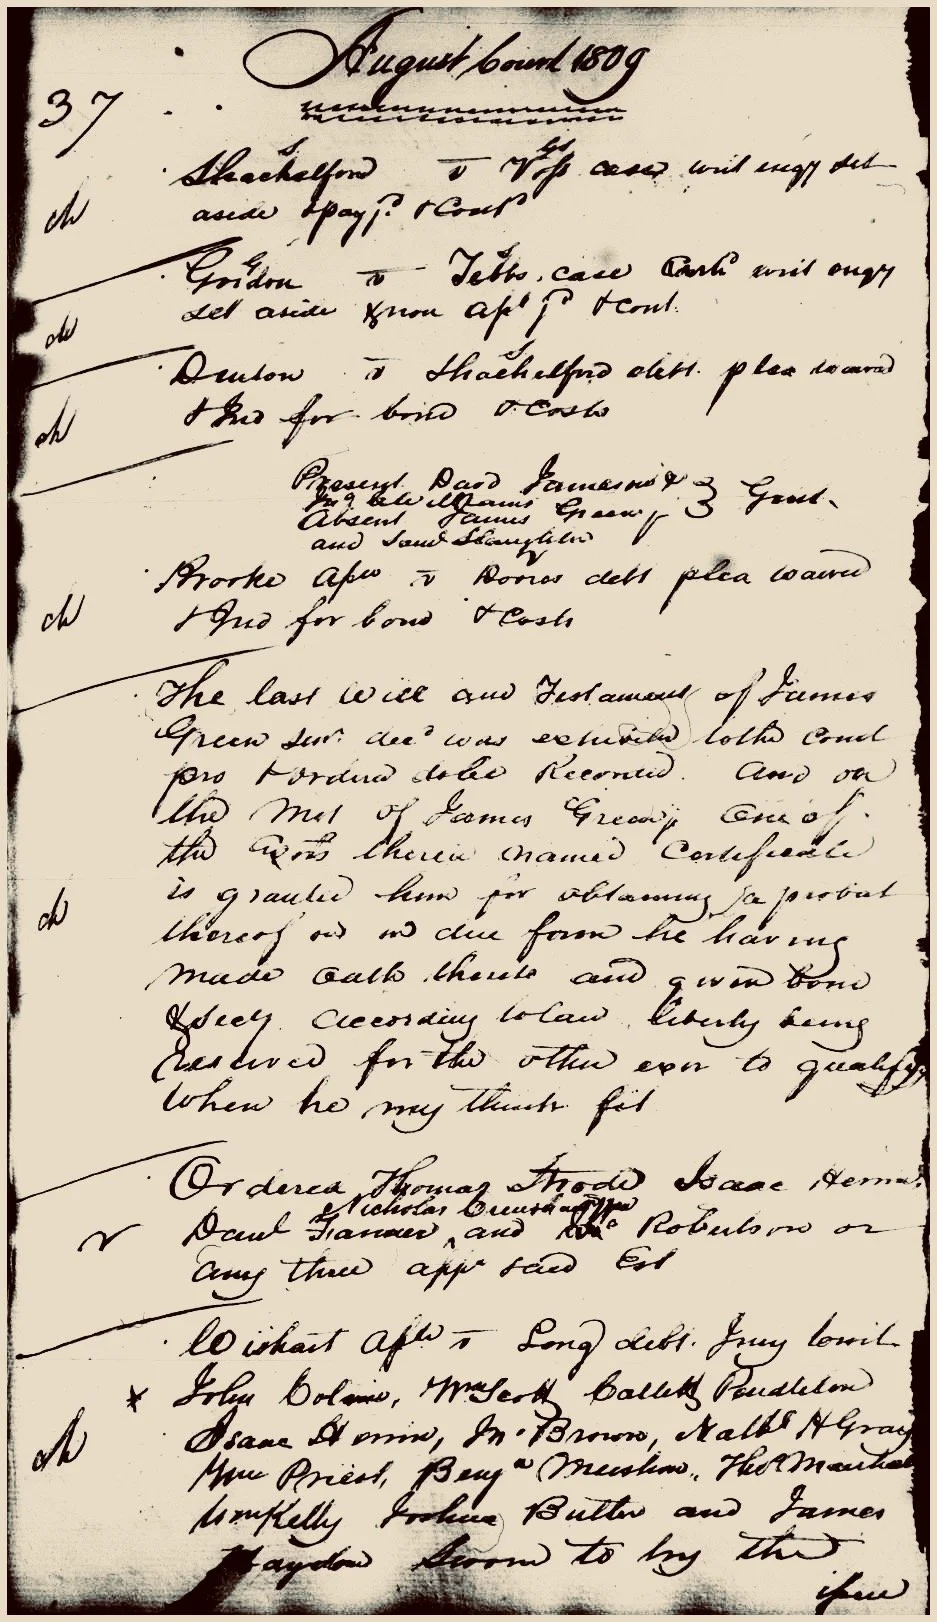 August Court 1809
37
S
Gs
Shackelford v Voss case writ enqy set
ch
aside & pay jd & Contd
G
S
Gordon v Tebbs case writ enqy
ch
set aside & non asst jd & cont.
S
Deuson v Shackelford debt. plea waived
ch
& Jud for bond & Costs
Present Davd Jameson &
Jno Williams } Gent.
Absent James Green jr
and Saml Slaughter
Brooke Assee v debt plea waived
ch
& Jud for bond & Costs
The last Will and Testament of James
Green Senr. decd was exhibited to the Court
pro & ordered to be Recorded. And on
the Mot of James Green jr One of
the Exors therein named Certificate
is granted him for obtaining a probat
ch
thereof in due form he having
made Oath thereto and given bond
& Secy according to Law liberty being
reserved for the other exor to qualify
When he my think fit
Ordered Thomas Strode Isaac Hernn.
Nicholas Crenshaw
r
Danl Farmer ^ and Robertson or
any three appr said Est
Wishart Asse v Long debt. Jury towit
x John Wm Scott Catlett Pendleton
Isaac Hernn, Jn. Brown, Nathl H Gray
ch
Wm Priest, Benja Thos Marshall
Wm Kelly Joshua Butler and James
Haydon Sworn to try the
issue